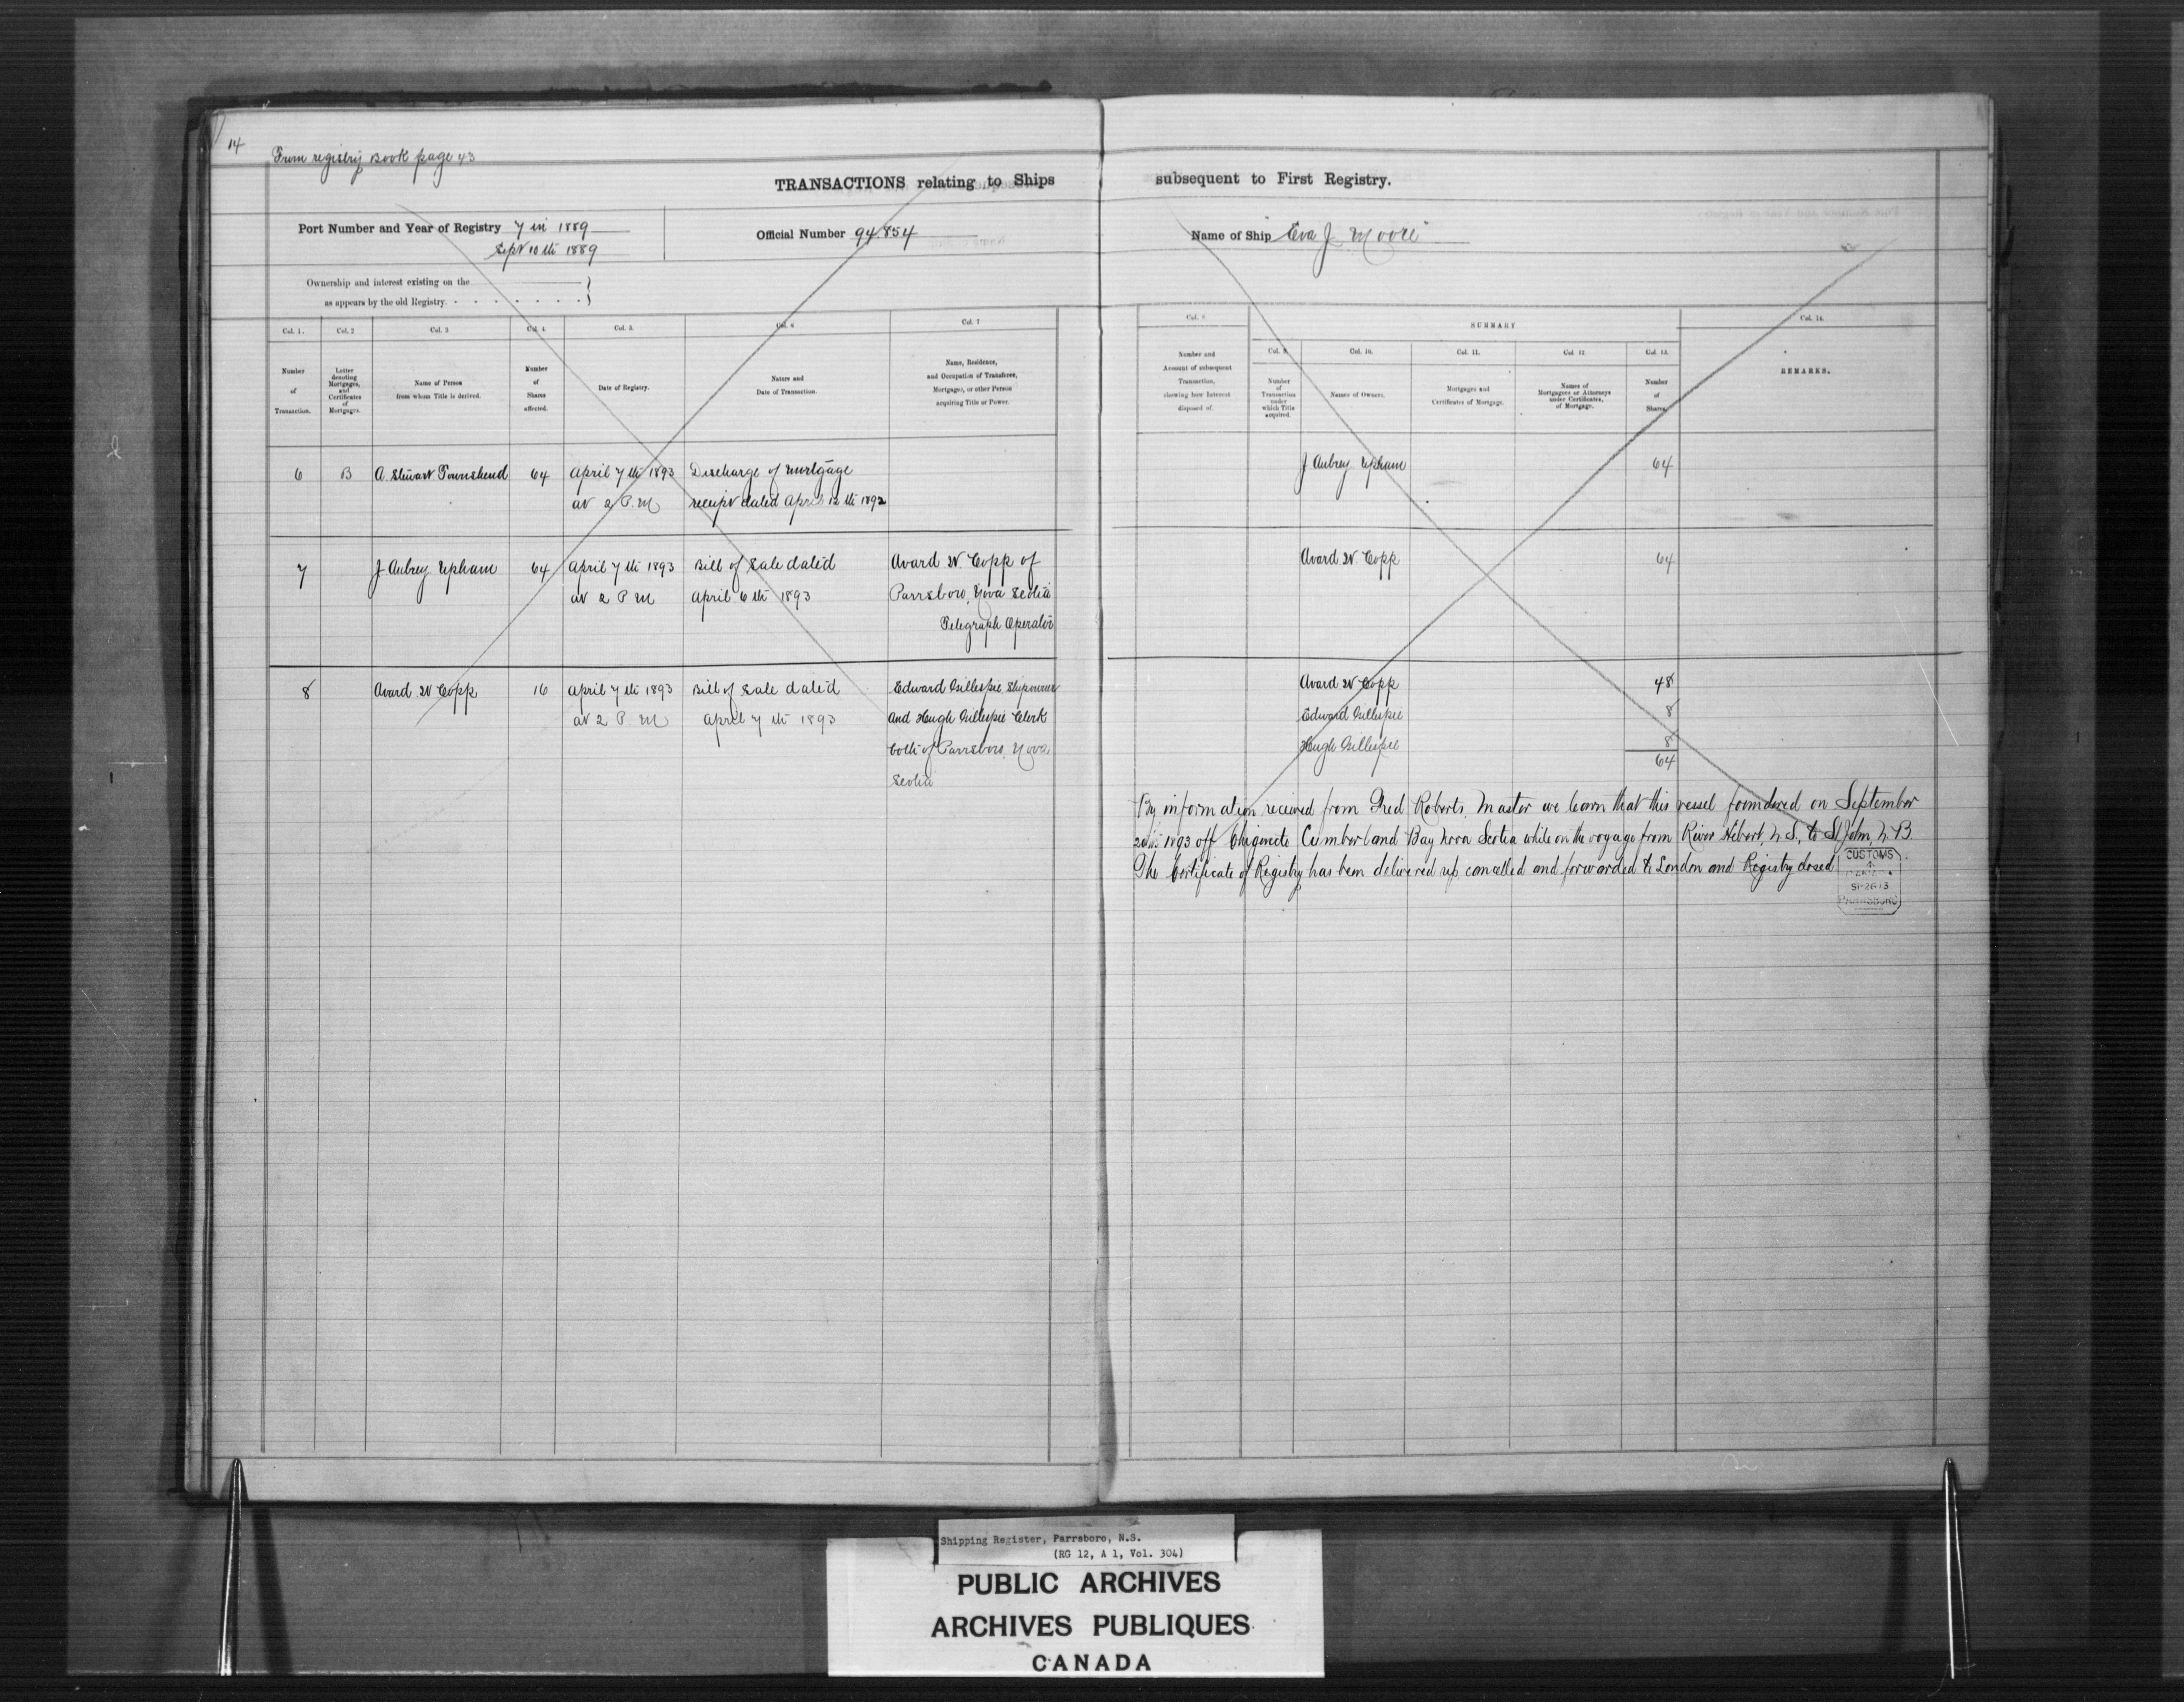 14
From registry Book page 43
TRANSACTIONS relating to Ships subsequent to First Registry.
Port Number and Year of Registry 7 in 1889
Sept 10th 1889
Official Number 94.854
Name of Ship "Eva J Moore"
Ownership and interest existing on the
as appears by the old Registry.
Col. 1. Col. 2 Col. 3 Col. 4. Col. 5. Col. 6 Col. 7
Number of Transaction.
Letter denoting Mortgages, and Certificates of Mortgages.
Name of Person from whom Title is derived.
Number of Shares affected.
Date of Registry.
Nature and Date of Transaction.
Name, Residence, and Occupation of Transferee, Mortgagee, or other Person acquiring Title or Power.
Col. 8.
Number and Account of subsequent Transaction, showing how Interest disposed of.
SUMMARY
Col. 9. Col. 10. Col. 11. Col. 12 Col. 13.
Number of Transaction under which Title acquired.
Names of Owners.
Mortgages and Certificates of Mortgage.
Names of Mortgagees or Attorneys under Certificates, of Mortgage.
Number of Shares.
Col. 14.
REMARKS.
6 B A. Stewart Townshend 64 April 7th 1893 Discharge of mortgage
at 2 P.M receipt dated April 12th 1892
J Aubrey Upham 64
7 J. Aubrey Upham 64 April 7th 1893 Bill of Sale dated Avard W Copp of
at 2 P M April 6th 1893 Parrsboro, Nova Scotia
Telegraph Operator
Avard W. Copp 64
8 Avard W Copp 16 April 7th 1893 Bill of Sale dated Edward Gillespie Shipowner
at 2 P. M April 7th 1893 and Hugh Gillespie Clerk
both of Parrsboro, Nova
Scotia
Avard W Copp 48
Edward Gillespie 8
Hugh Gillespie 8
64
By information received from Fred Roberts, Master we learn that this vessel foundered on September
20th 1893 off Chignecto Cumberland Bay Nova Scotia while on the voyage from River Hebert, N.S, to St John, N.B
The Certificate of Registry has been delivered up cancelled and forwarded to London and Registry closed
CUSTOMS
PARRSBORO
Shipping Register, Parrsboro, N.S.
(RG 12, A 1, Vol. 304)
PUBLIC ARCHIVES
ARCHIVES PUBLIQUES
CANADA